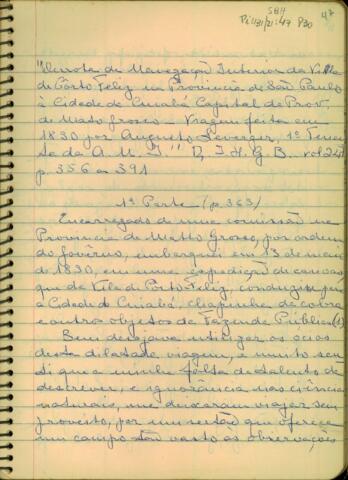 SBH
Pi 131/21:47 P30
47
"Derrota da Navegação Interior da Villa
de Pôrto Feliz na Provincia de São Paulo
à Cidade de Cuiabá Capital da Prov.
de Matto grosso - Viagem feita em
1830 por Augusto Leverger, 1º Tenen
te da A. N. I." R. I. H. G. B. vol.
p. 356 a 391
1ª Parte (p. 363)
Encarregado de uma comissão na
Provincia de Matto Grosso, por ordem
do Govêrno, embarquei em 13 de maio
de 1830, em uma expedição de canoas
que da Vila de Porto Feliz, conduzia p.
a Cidade de Cuiabá, chapinha de cobre
e outros objetos da Fazenda Pública (1)
Bem desejava utilizar os ocios
desta dilatada viagem, e muito sen
ti que a minha falta de talento de
descrever, e ignorância nas ciências
naturais, me deixaram viajar sem
proveito, por um sertão que oferece
um campo tão vasto às observações